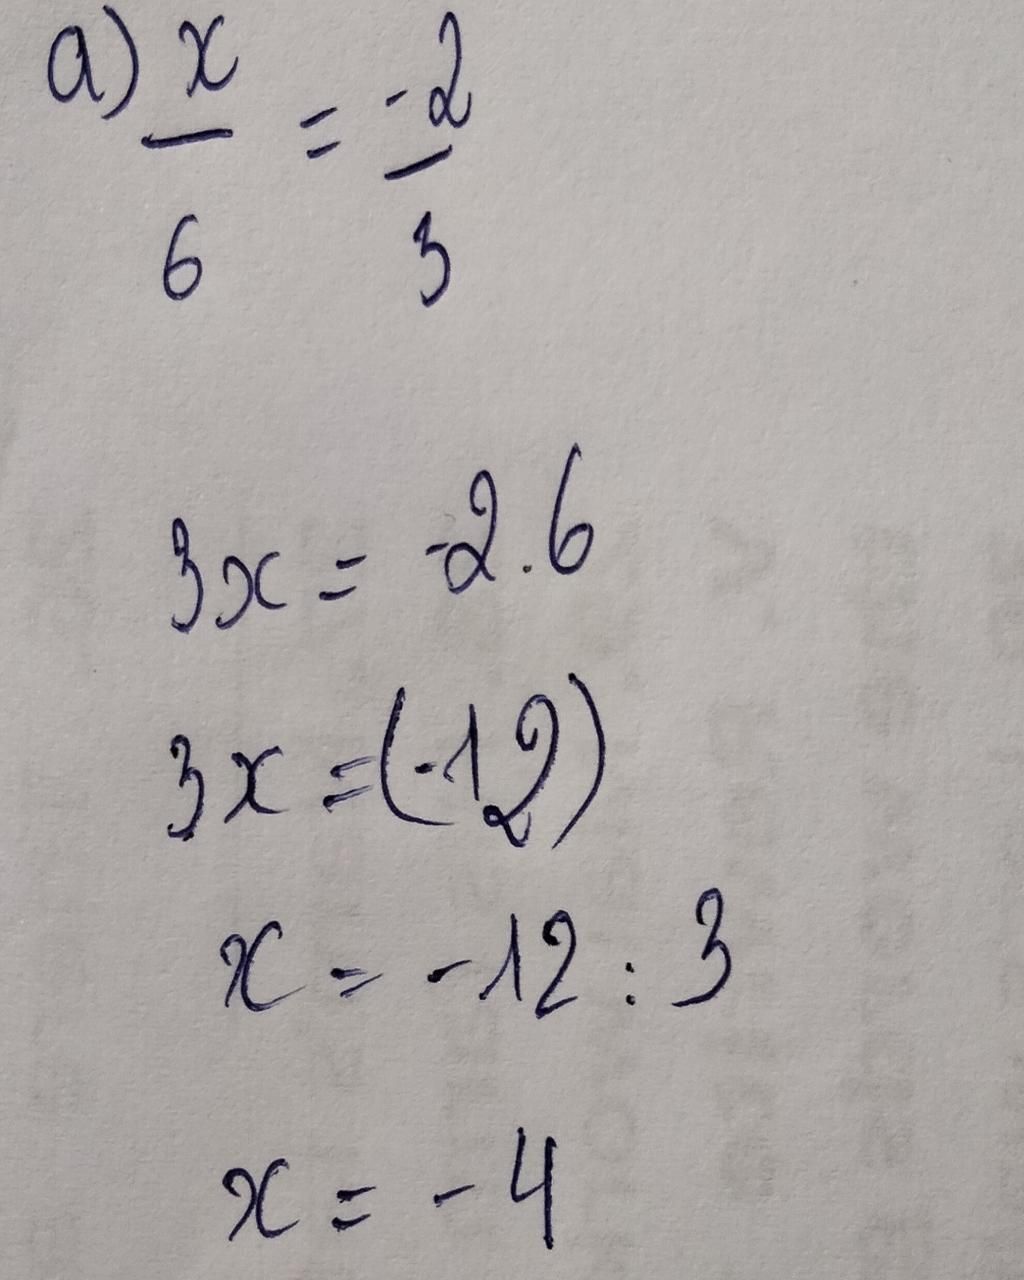 a) x/6 = -2/3
3x = -2.6
3x = (-12)
x = -12 : 3
x = -4